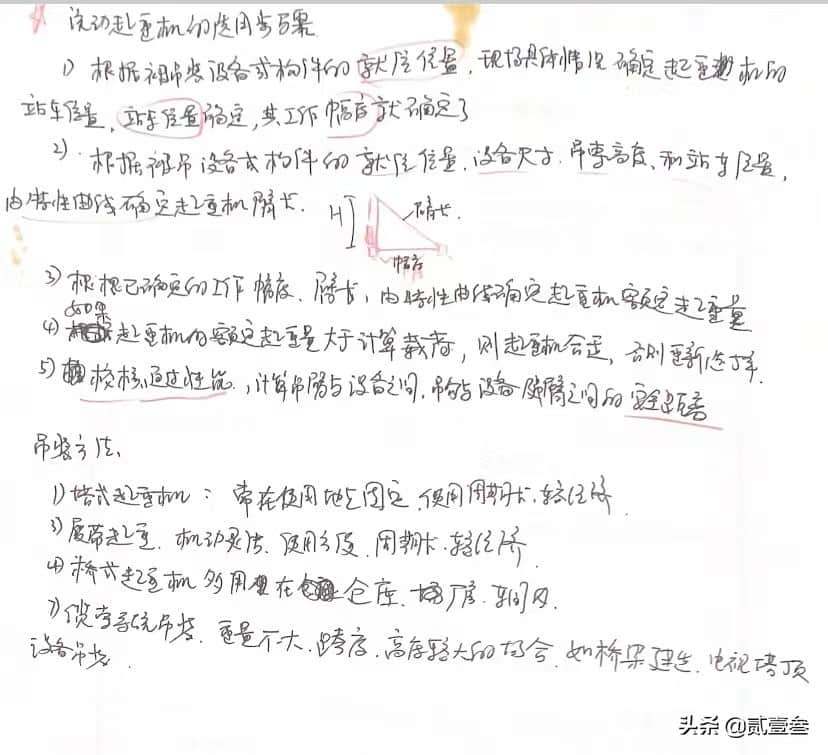 流动起重机的使用步骤
1) 根据被吊装设备或构件的就位位置,现场具体情况确定起重机的
站车位置,站车位置确定,其工作幅度就确定了
2) 根据被吊设备或构件的就位位置、设备尺寸、吊索高度、和站车位置,
由特性曲线确定起重机臂长.
H 臂长.
幅度
3) 根据已确定的工作幅度、臂长,由特性曲线确定起重机额定起重量
如果
4) 起重机的额定起重量大于计算载荷,则起重机合适,否则重新选择.
5) 校核通过性能,计算吊臂与设备之间,吊钩与设备及吊臂之间的安全距离
吊装方法、
1) 塔式起重机: 常在使用地点固定、使用周期长、较经济
3) 履带起重、机动灵活、使用方便、周期长、较经济
4) 桥式起重机多用在仓库、厂房、车间内.
7) 缆索系统吊装、重量不大、跨度、高度较大的场合、如桥梁建造、电视塔顶
设备吊装.
头条 @贰壹叁